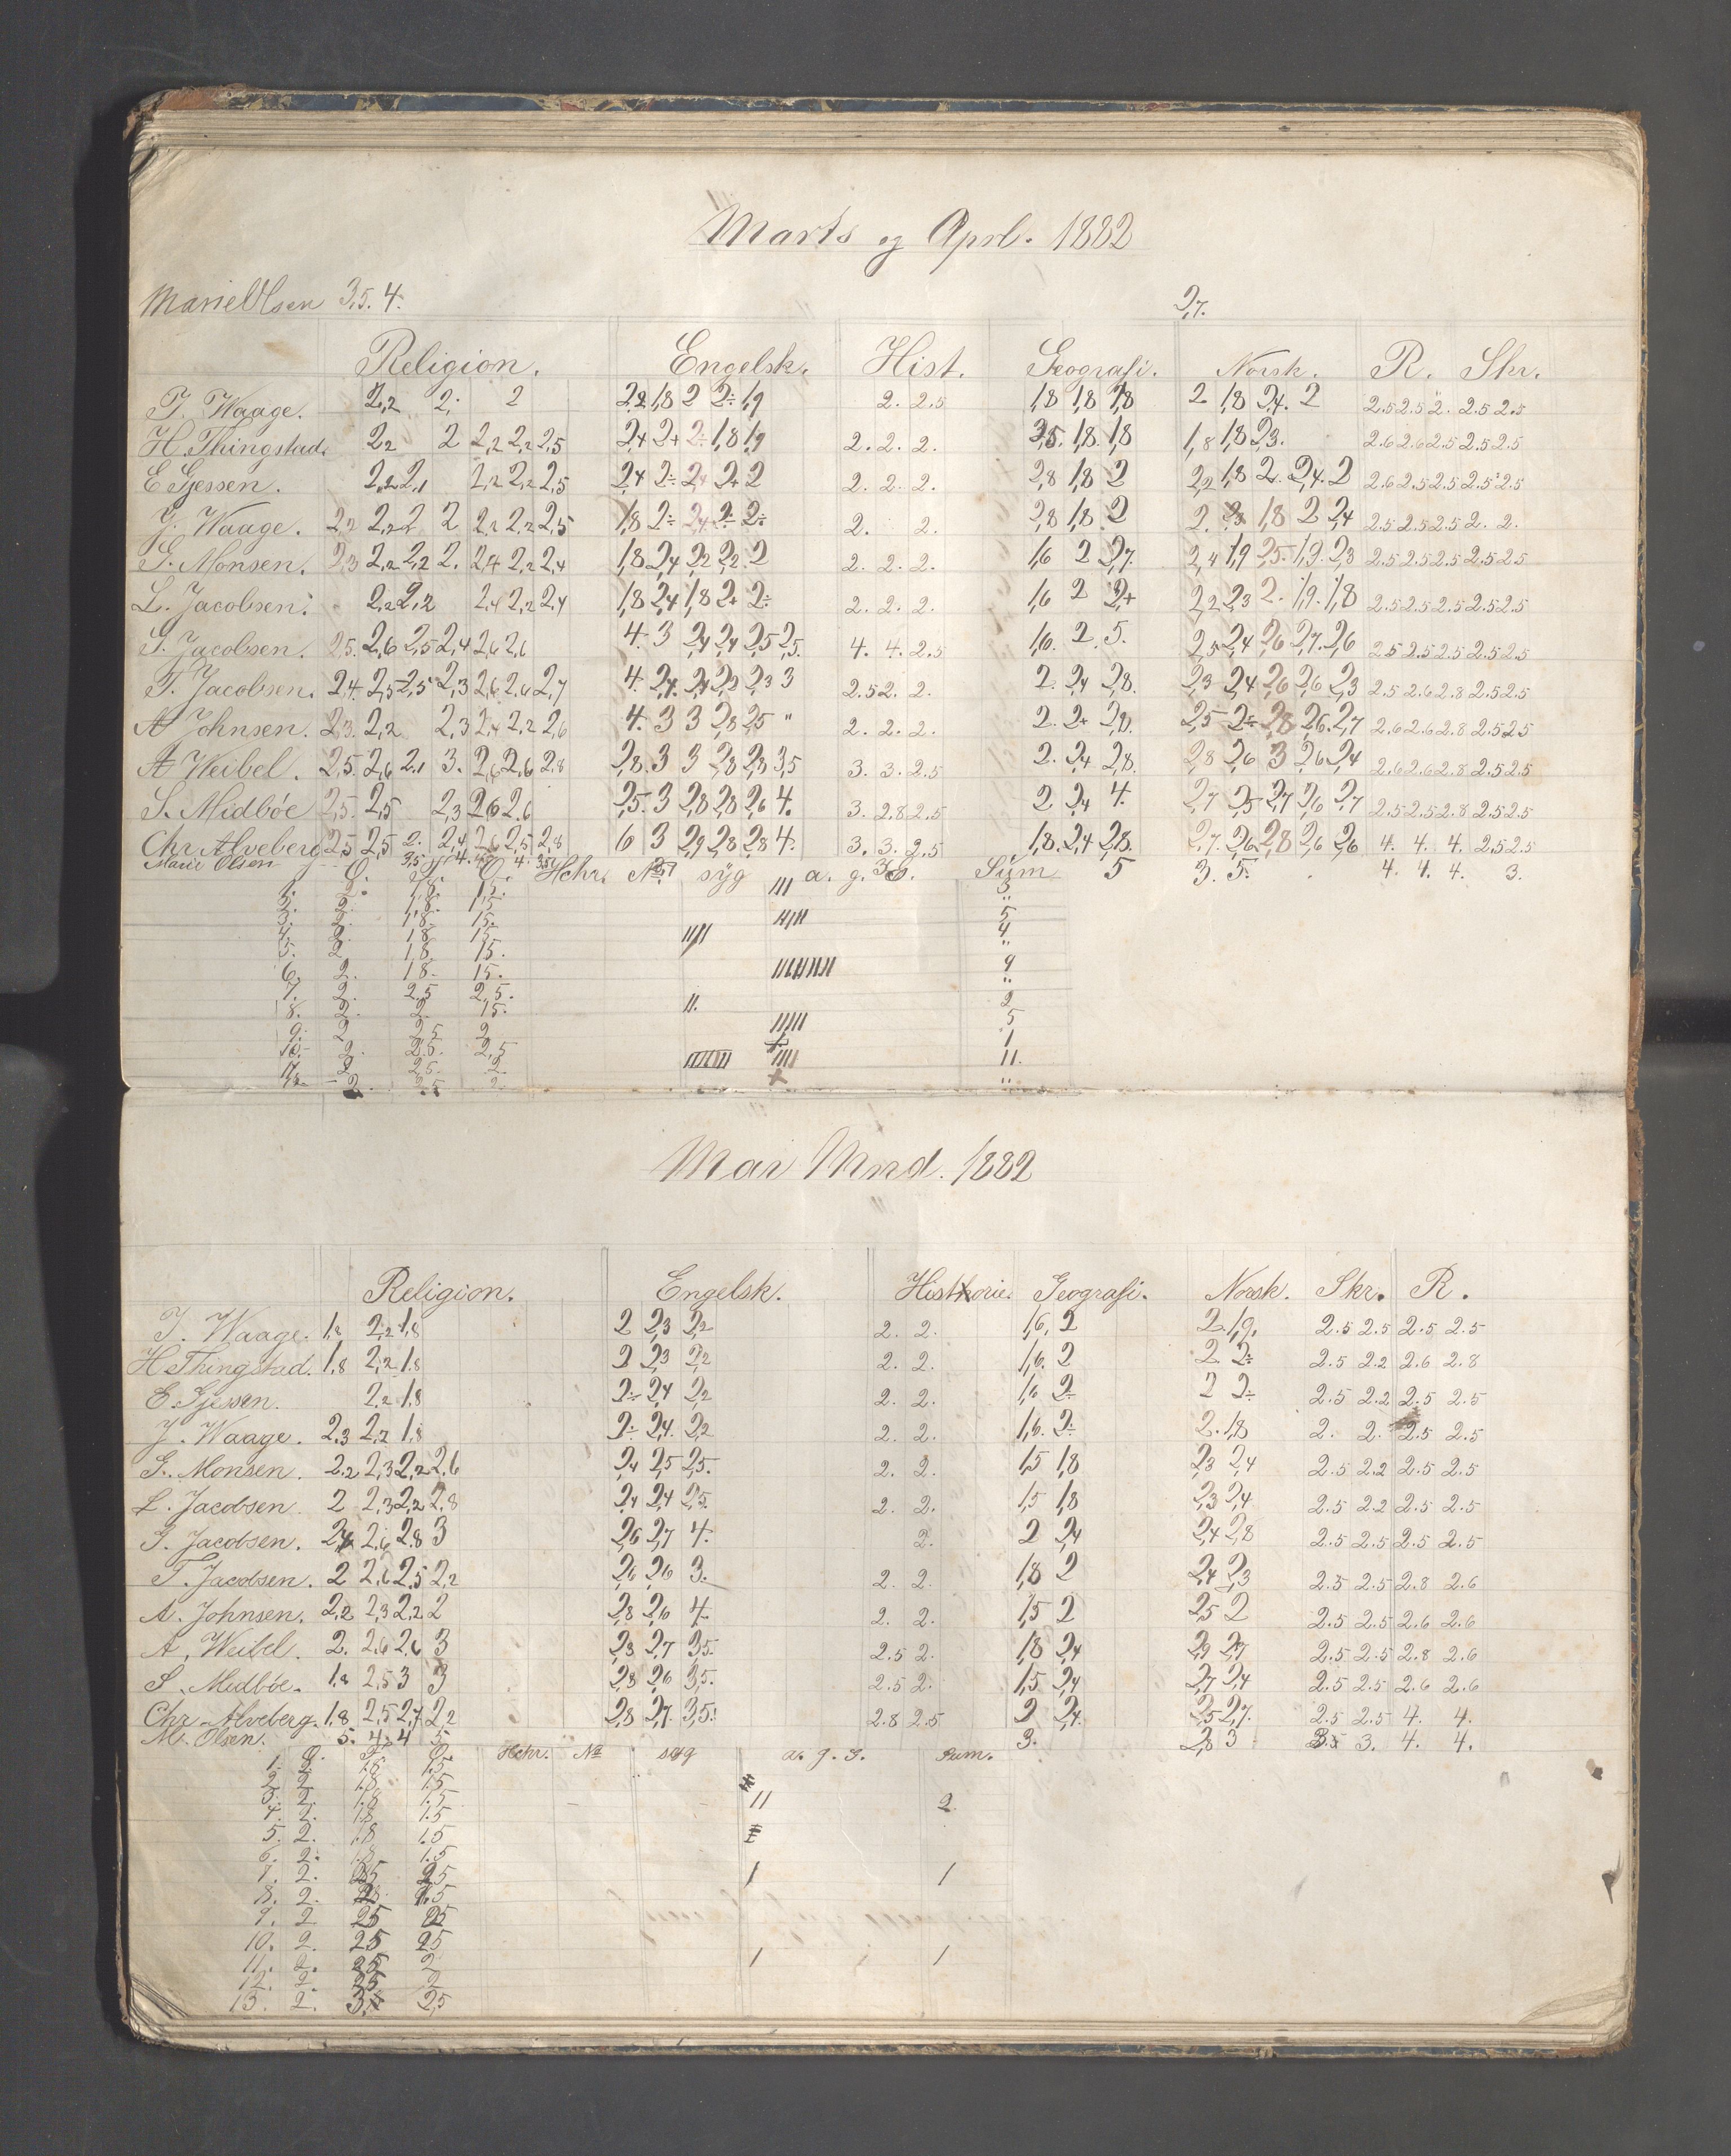 Marts og Aprl. 1882
Marie Olsen 3,5. 4. 2,7.
Religion. Engelsk. Hist. Geografi. Norsk. R. Skr.
J. Waage. 2,2 2. 2 2,2 1,8 2 2÷ 1,9 2. 2.5 1,8 1,8 1,8 2 1,8 2,4. 2 2.5 2.5 2. 2.5 2.5
H Thingstad. 2,2 2 2,2 2,2 2,5 2,4 2+ 2÷ 1,8 1,9 2. 2. 2. 3,5. 1,8. 1,8 1,8 1,8 2,3. 2.6 2.6 2.5 2.5 2.5
E Gjessen. 2,2 2,1 2,2 2,2 2,5 2,4 2÷ 2,4 2+ 2 2. 2. 2. 2,8 1,8 2 2,2 1,8 2. 2,4. 2 2.6 2.5 2.5 2.5 2.5
J. Waage. 2,2 2,2 2 2 2,2 2,2 2,5 1,8 2÷ 2,4 2÷ 2÷ 2. 2. 2,8 1,8. 2 2. 1,8 2 2,4 2.5 2.5 2.5 2. 2.
G. Monsen. 2,3 2,2 2,2 2. 2,4 2,2 2,4 1,8 2,4 2,2 2,2. 2 2. 2. 2. 1,6 2 2,7. 2,4 1,9 2,5. 1,9. 2,3 2.5 2.5 2.5 2.5 2.5
L. Jacobsen. 2,2 2,2 2,4 2,2 2,4 1,8 2,4 1,8 2+ 2÷ 2. 2. 2. 1,6 2 2+ 2,2 2,3 2. 1,9. 1,8 2.5 2.5 2.5 2.5 2.5
G. Jacobsen. 2,5. 2,6 2,5 2,4 2,6 2,6 4. 3 2,4 2,4 2,5 2,5. 4. 4. 2.5 1,6. 2. 5. 2,5 2,4 2,6 2,7. 2,6 2.5 2.5 2.5 2.5 2.5
T. Jacobsen. 2,4. 2,5 2,5 2,3 2,6 2,6 2,7 4. 2,4. 2,4 2,2 2,3 3 2.5 2. 2. 2. 2,4 2,8. 2,3 2,4 2,6 2,6 2,3 2.5 2.6 2.8 2.5 2.5
A Johnsen. 2,3. 2,2 2,3 2,4 2,2 2,6 4. 3 3 2,8 2,5 " 2. 2. 2. 2. 2+ 2,8. 2,5 2÷ 2,8 2,6. 2,7 2.6 2.6 2.8 2.5 2.5
A Weibel. 2,5. 2,6 2,1 3. 2,6 2,6 2,8 2,8 3 3 2,8 2,8 3,5 3. 3. 2.5 2. 2,4 2,8. 2,8 2,6 3 2,6 2,4 2.6 2.6 2.8 2.5 2.5
S. Medböe 2,5. 2,5 2,3 2,6 2,6 2,5. 3 2,8 2,8 2,6 4. 3. 2.8 2.5 2 2,4 4. 2,7 2,5 2,7 2,6 2,7 2.5 2.5 2.8 2.5 2.5
Chr Alveberg 2,5 2,5 2. 2,4 2,6 2,5 2,8 6 3 2,9 2,8 2,8 4. 3. 3. 2.5 1,8. 2,4 2,8. 2,7. 2,6 2,8 2,6 2,6 4. 4. 4. 2.5 2.5
Marie Olsen 5 3. 5. 4. 4. 4. 3.
Hchr. No syg a. g. Sum
1. 2. 1,8. 1,5. 3
2. 2. 1,8. 1,5 "
3. 2. 1,8. 1,5. 5
4. 2. 1,8 1,5 4
5. 2 1,8 1,5. "
6. 2. 1,8. 1,5. 9
7. 2. 2.5 2,5. "
8. 2. 2. 1,5. 2
9. 2 2,5 2 5
10. 2. 2,5. 2,5 1
11. 2 2,5. 2. 11.
12. 2. 2,5 2. "
Mai Mnd. 1882
Religion. Engelsk. Historie. Geografi. Norsk. Skr. R.
J. Waage. 1,8 2,2 1,8 2 2,3 2,2 2. 2. 1,6. 2 2. 1,9. 2.5 2.5 2.5 2.5
H Thingstad. 1,8 2,2 1,8 2 2,3 2,2 2. 2. 1,6. 2 2 2÷ 2.5 2.2 2.6 2.8
E. Gjessen. 2,2 1,8 2÷ 2,4 2,2 2. 2. 1,6 2÷ 2 2÷ 2.5 2.2 2.5 2.5
J. Waage. 2,3 2,2 1,8 2÷ 2,4. 2,2 2. 2. 1,6. 2÷ 2. 1,8 2. 2. 2.5 2.5
G. Monsen. 2,2 2,3 2,2 2,6 2,4 2,5 2,5. 2. 2. 1,5 1,8 2,3 2,4 2.5 2.2 2.5 2.5
L. Jacobsen. 2 2,3 2,2 2,8 2,4 2,4 2,5. 2. 2. 1,5 1,8 2,3 2,4 2.5 2.2 2.5 2.5
G. Jacobsen. 2,4 2,6 2,8 3 2,6 2,7 4. 2. 2 2,4 2,4 2,8 2.5 2.5 2.5 2.5
T. Jacobsen. 2 2,6 2,5 2,2 2,6 2,6 3. 2. 2. 1,8 2 2,4 2,3 2.5 2.5 2.8 2.6
A. Johnsen. 2,2 2,3 2,2 2 2,8 2,6 4. 2. 2. 1,5 2 2,5 2 2.5 2.5 2.6 2.6
A. Weibel. 2. 2,6 2,6 3 2,3 2,7 3,5. 2.5 2. 1,8 2,4 2,9 2,7 2.5 2.5 2.8 2.6
S. Medböe. 1,8 2,5 3 3 2,8 2,6 3,5. 2.5 2. 1,5 2,4 2,7 2,4 2.5 2.5 2.6 2.6
Chr Alveberg. 1,8 2,5 2,7 2,2 2,8 2,7. 3,5. 2.8 2.5 2 2,4. 2,5 2,7. 2.5 2.5 4. 4.
M. Olsen. 5. 4. 4 5 3. 2,8 3 3. 4. 4.
Hchr. No syg a. g. s. sum.
1. 2. 1,8 1,5
2. 2. 1,8 1,5
3. 2. 1,8 1,5 2.
4. 2. 1,8 1.5
5. 2. 1,8 1.5
6. 2. 1,8 1.5
7. 2. 2,5 2,5 1
8. 2. 1,5
9. 2 2,5 2,5
10. 2. 2,5 2,5
11. 2. 2,5 2 1
12. 2. 2,5 2
13. 2. 3, 2,5